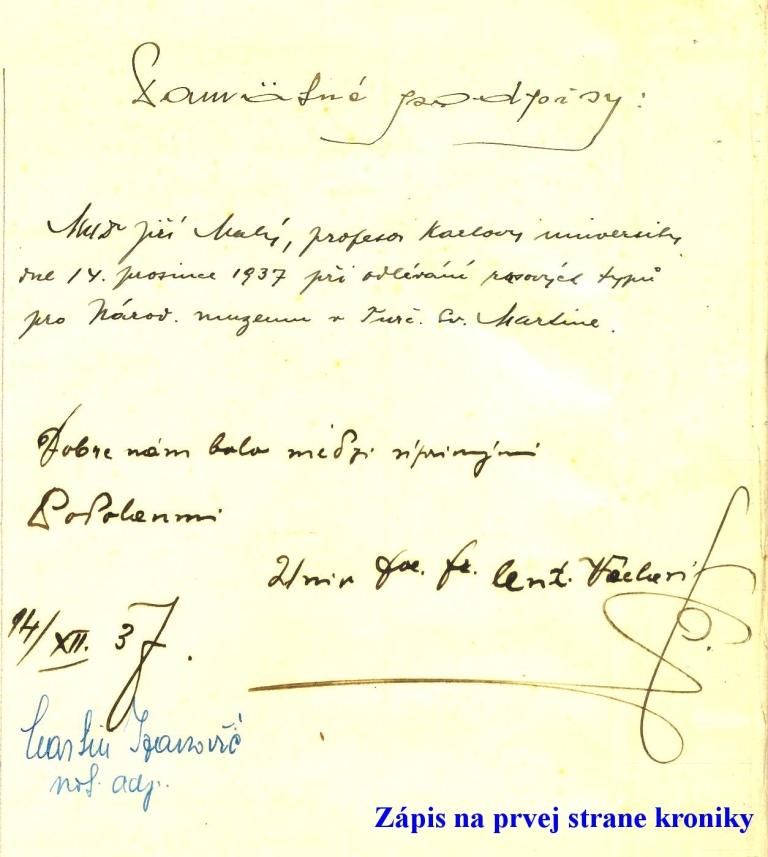 Pamätné podpisy:
MUDr Jiří Malý, profesor Karlovy university
dne 14. prosince 1937 při odlévání rasových typů
pro Národ. muzeum v Turč. Sv. Martine.
Dobre nám bolo medzi úprimnými
Podolanmi
Univ Doc. Dr. Ant.
14/XII. 37.
Martin
not. adj.
Zápis na prvej strane kroniky